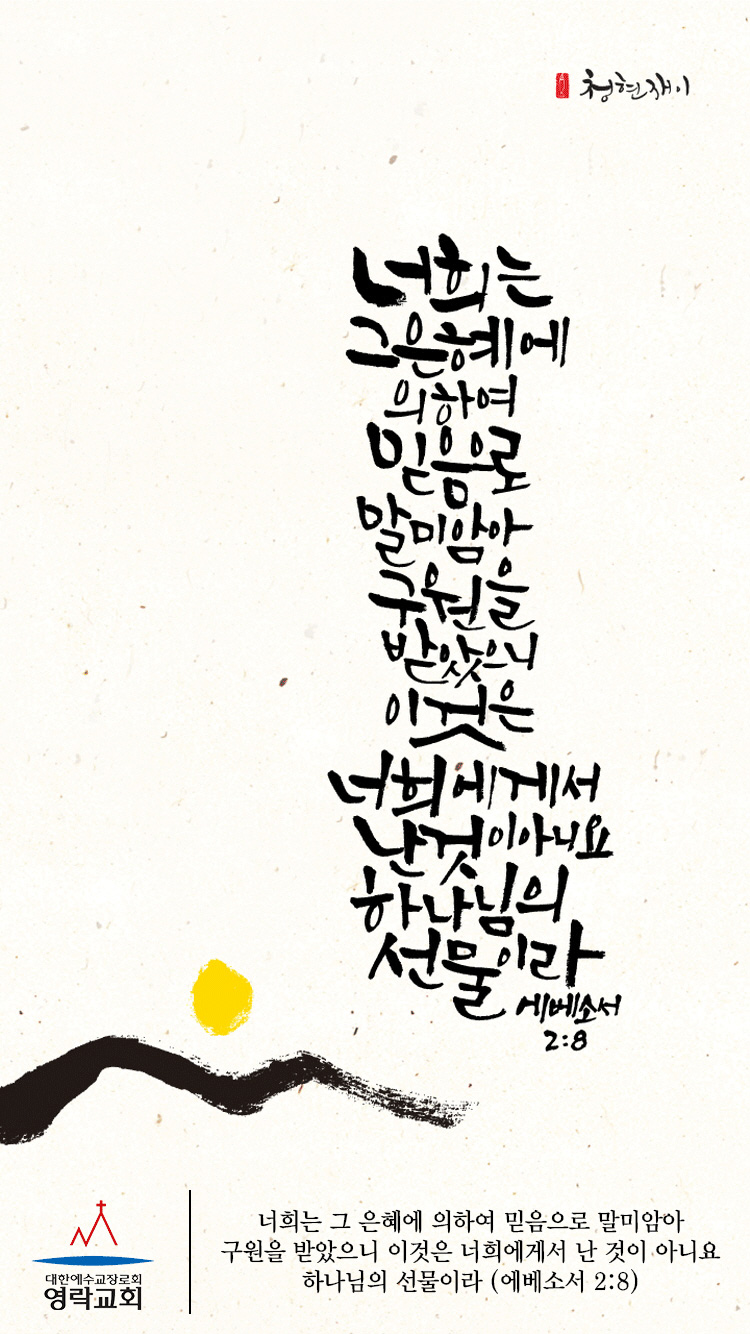 청현재이
너희는
그은혜에
의하여
믿음으로
말미암아
구원을
받았으니
이것은
너희에게서
난것이아니요
하나님의
선물이라
에베소서
2:8
대한예수교장로회
영락교회
너희는 그 은혜에 의하여 믿음으로 말미암아
구원을 받았으니 이것은 너희에게서 난 것이 아니요
하나님의 선물이라 (에베소서 2:8)